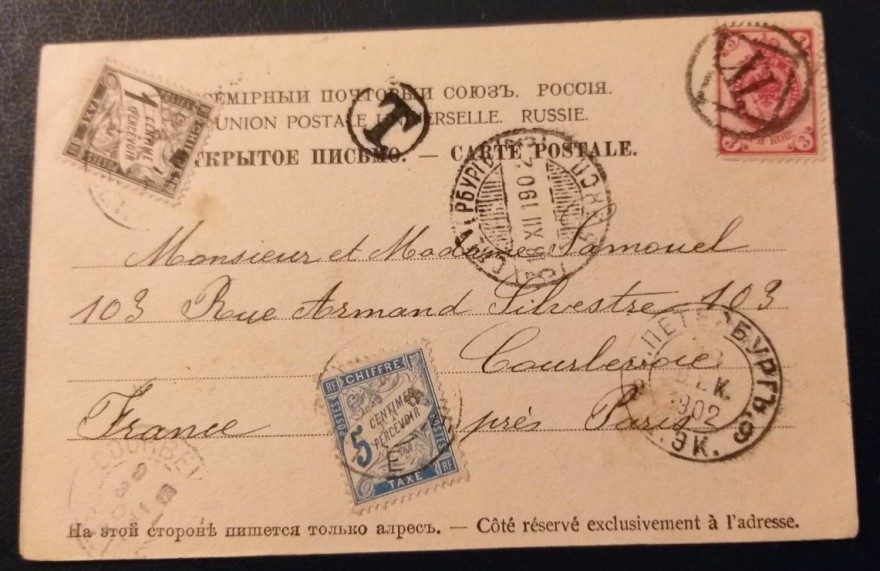 ВСЕМІРНЫЙ ПОЧТОВЫЙ СОЮЗЪ. РОССІЯ.
UNION POSTALE UNIVERSELLE. RUSSIE.
ОТКРЫТОЕ ПИСЬМО. — CARTE POSTALE.
T
1 CENTIME
A PERCEVOIR
TAXE
POSTES
RF
3
3
Monsieur et Madame Samouel
103 Rue Armand Silvestre 103
Courbevoie
France près Paris
XII 1902
ПЕТЕРБУРГЪ
1902
ЭК.
CHIFFRE
RF
POSTES
5 CENTIMES
A PERCEVOIR
TAXE
RF
COURBEV
На этой сторонѣ пишется только адресъ. — Côté réservé exclusivement à l'adresse.